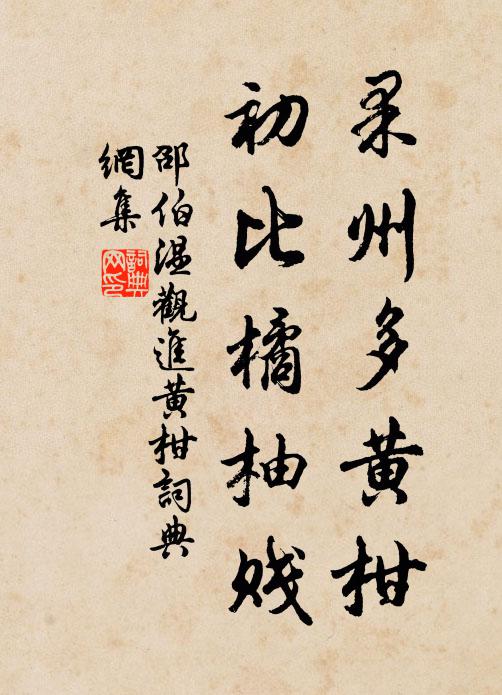 果州多黄柑
初比橘柚贱
邵伯温觀進黄柑詞典
網集
詞典网印